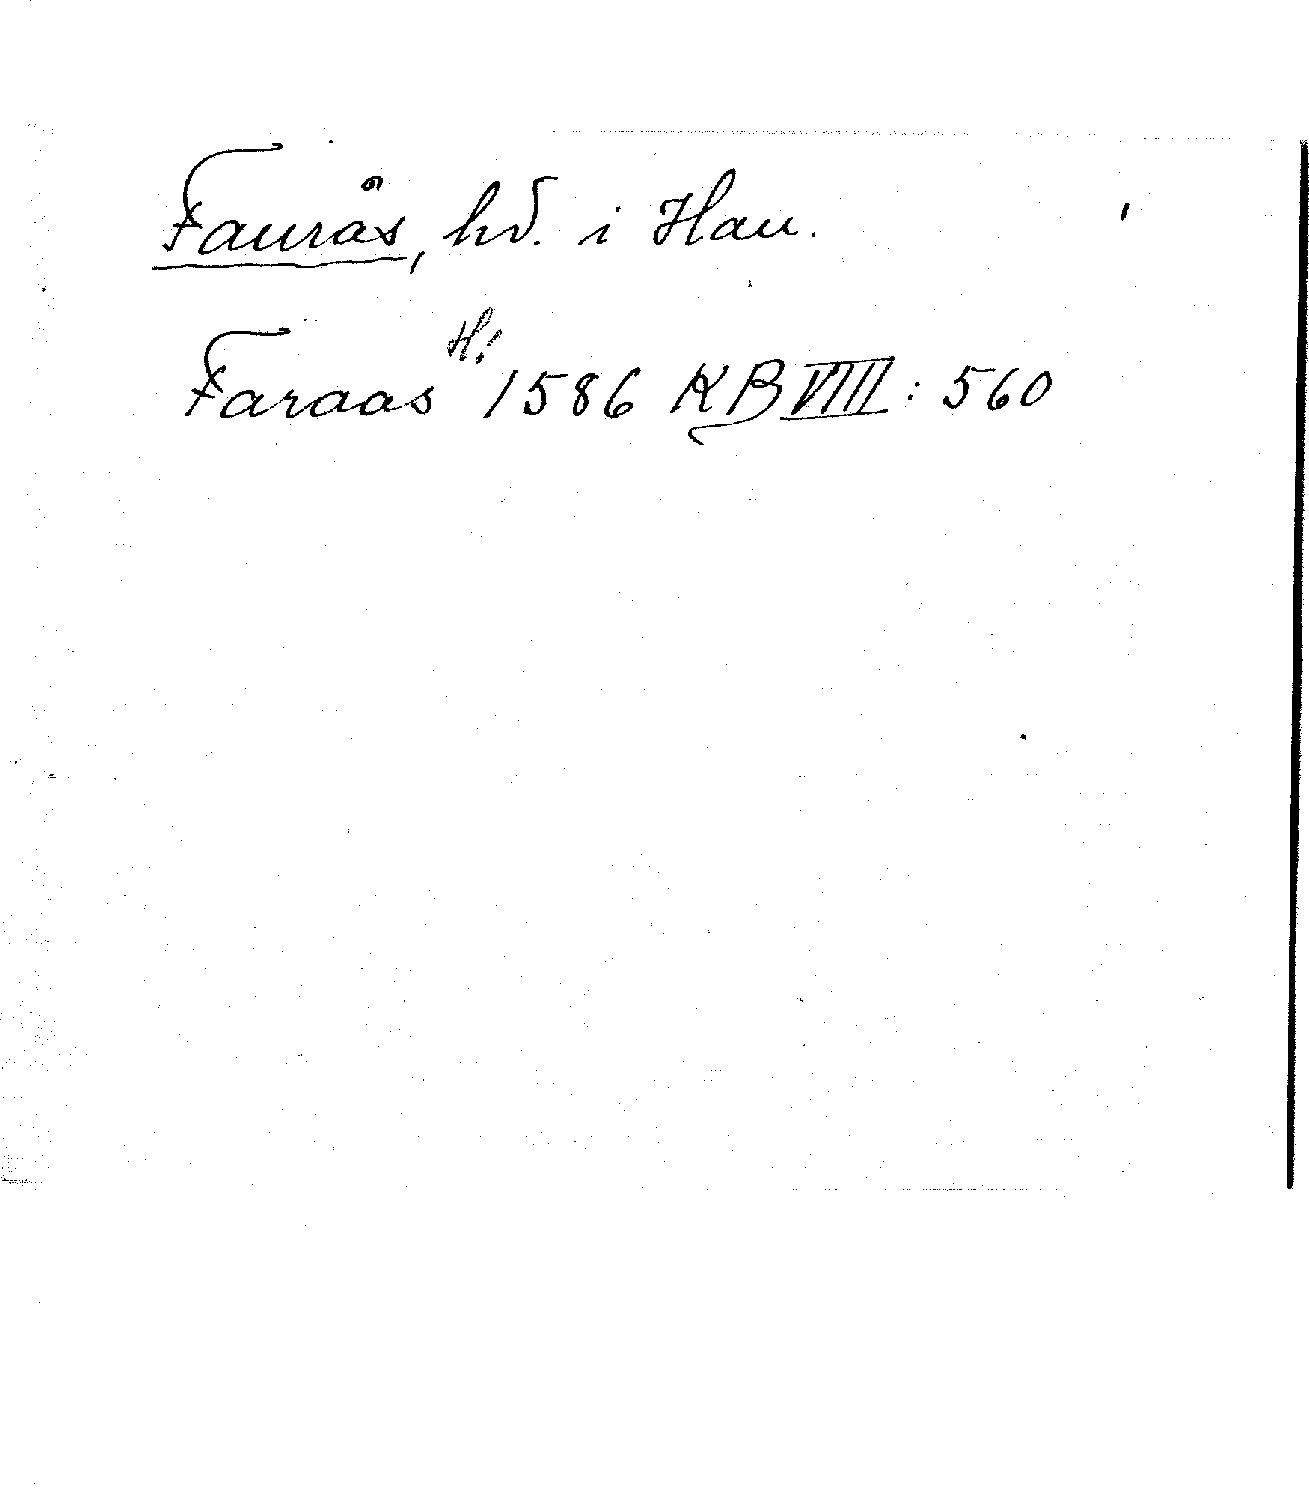 Faurås, hd. i Hau.
H!
Faraas 1586 KB VIII: 560